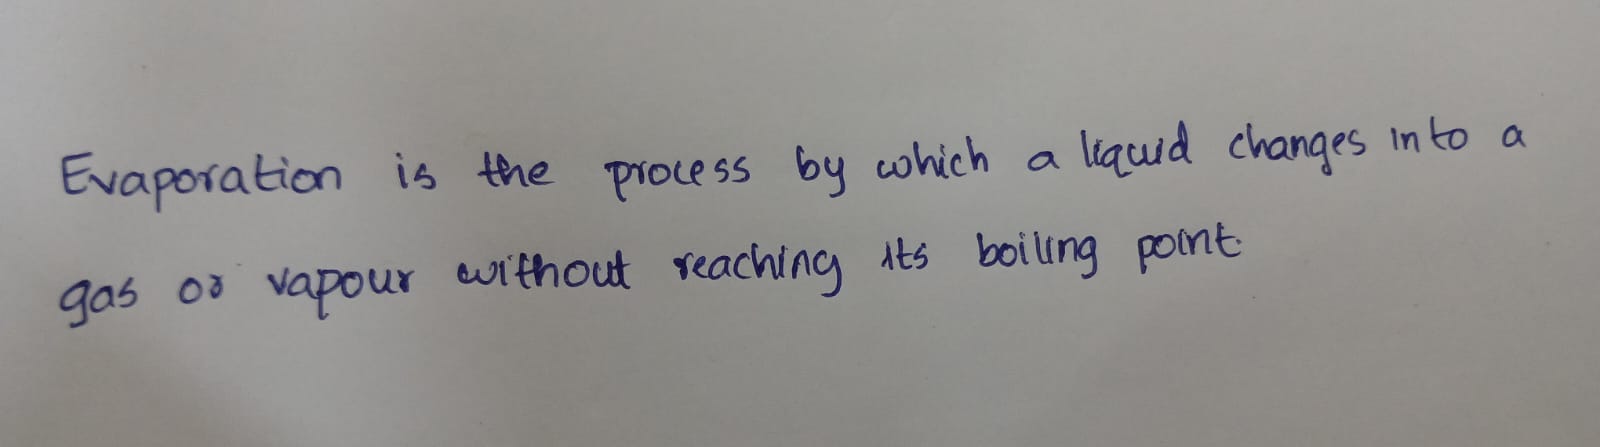 Evaporation is the process by which a liquid changes into a
gas or vapour without reaching its boiling point.